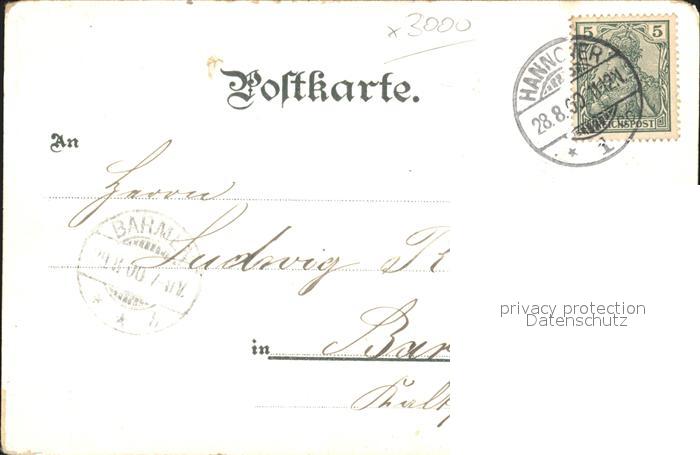 x3000
Postkarte.
5 5
REICHSPOST
HANNOVER
28.8.00. 11-12V.
* 1
An
Herrn
BARM
Ludwig
privacy protection
Datenschutz
in Bar